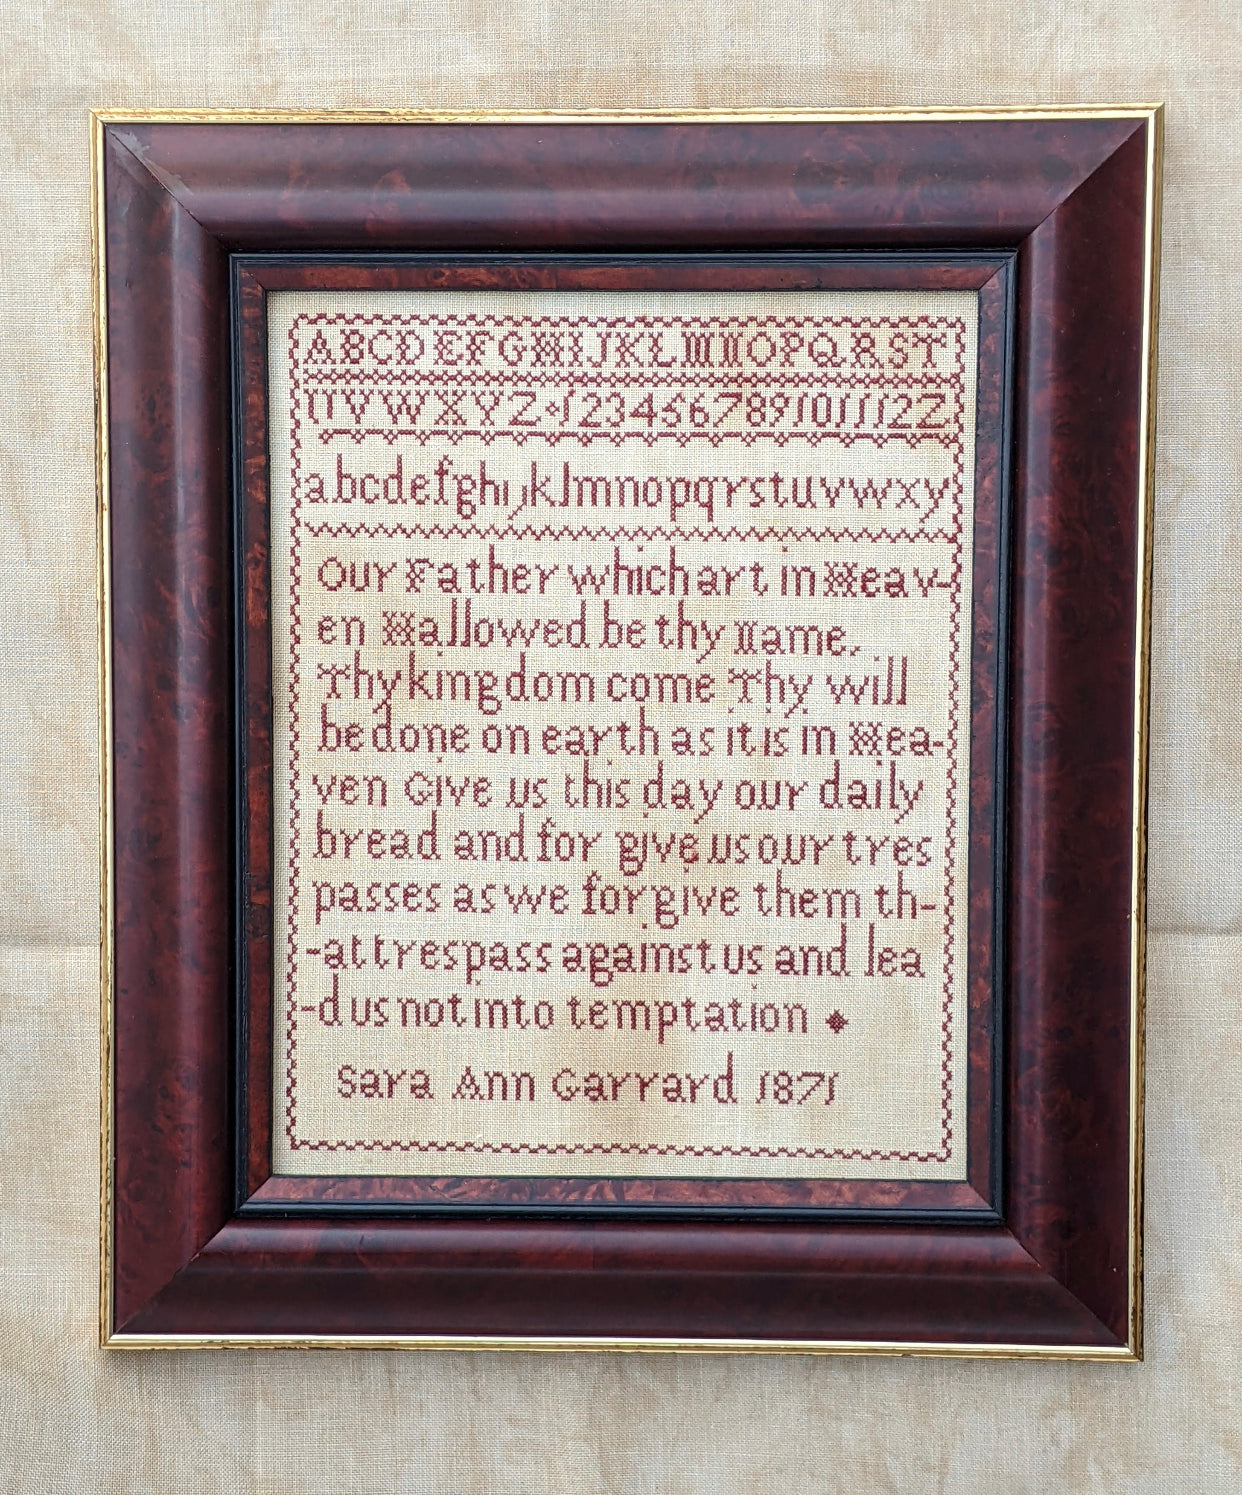 ABCDEFGHIJKLMNOPQRST
UVWXYZ 123456789101112Z
abcdefghijklmnopqrstuvwxy
Our Father which art in Heav-
en Hallowed be thy Name.
Thy kingdom come Thy will
be done on earth as it is in Hea-
ven Give us this day our daily
bread and for give us our tres
passes as we forgive them th-
-at trespass against us and lea
-d us not into temptation
Sara Ann Garrard 1871